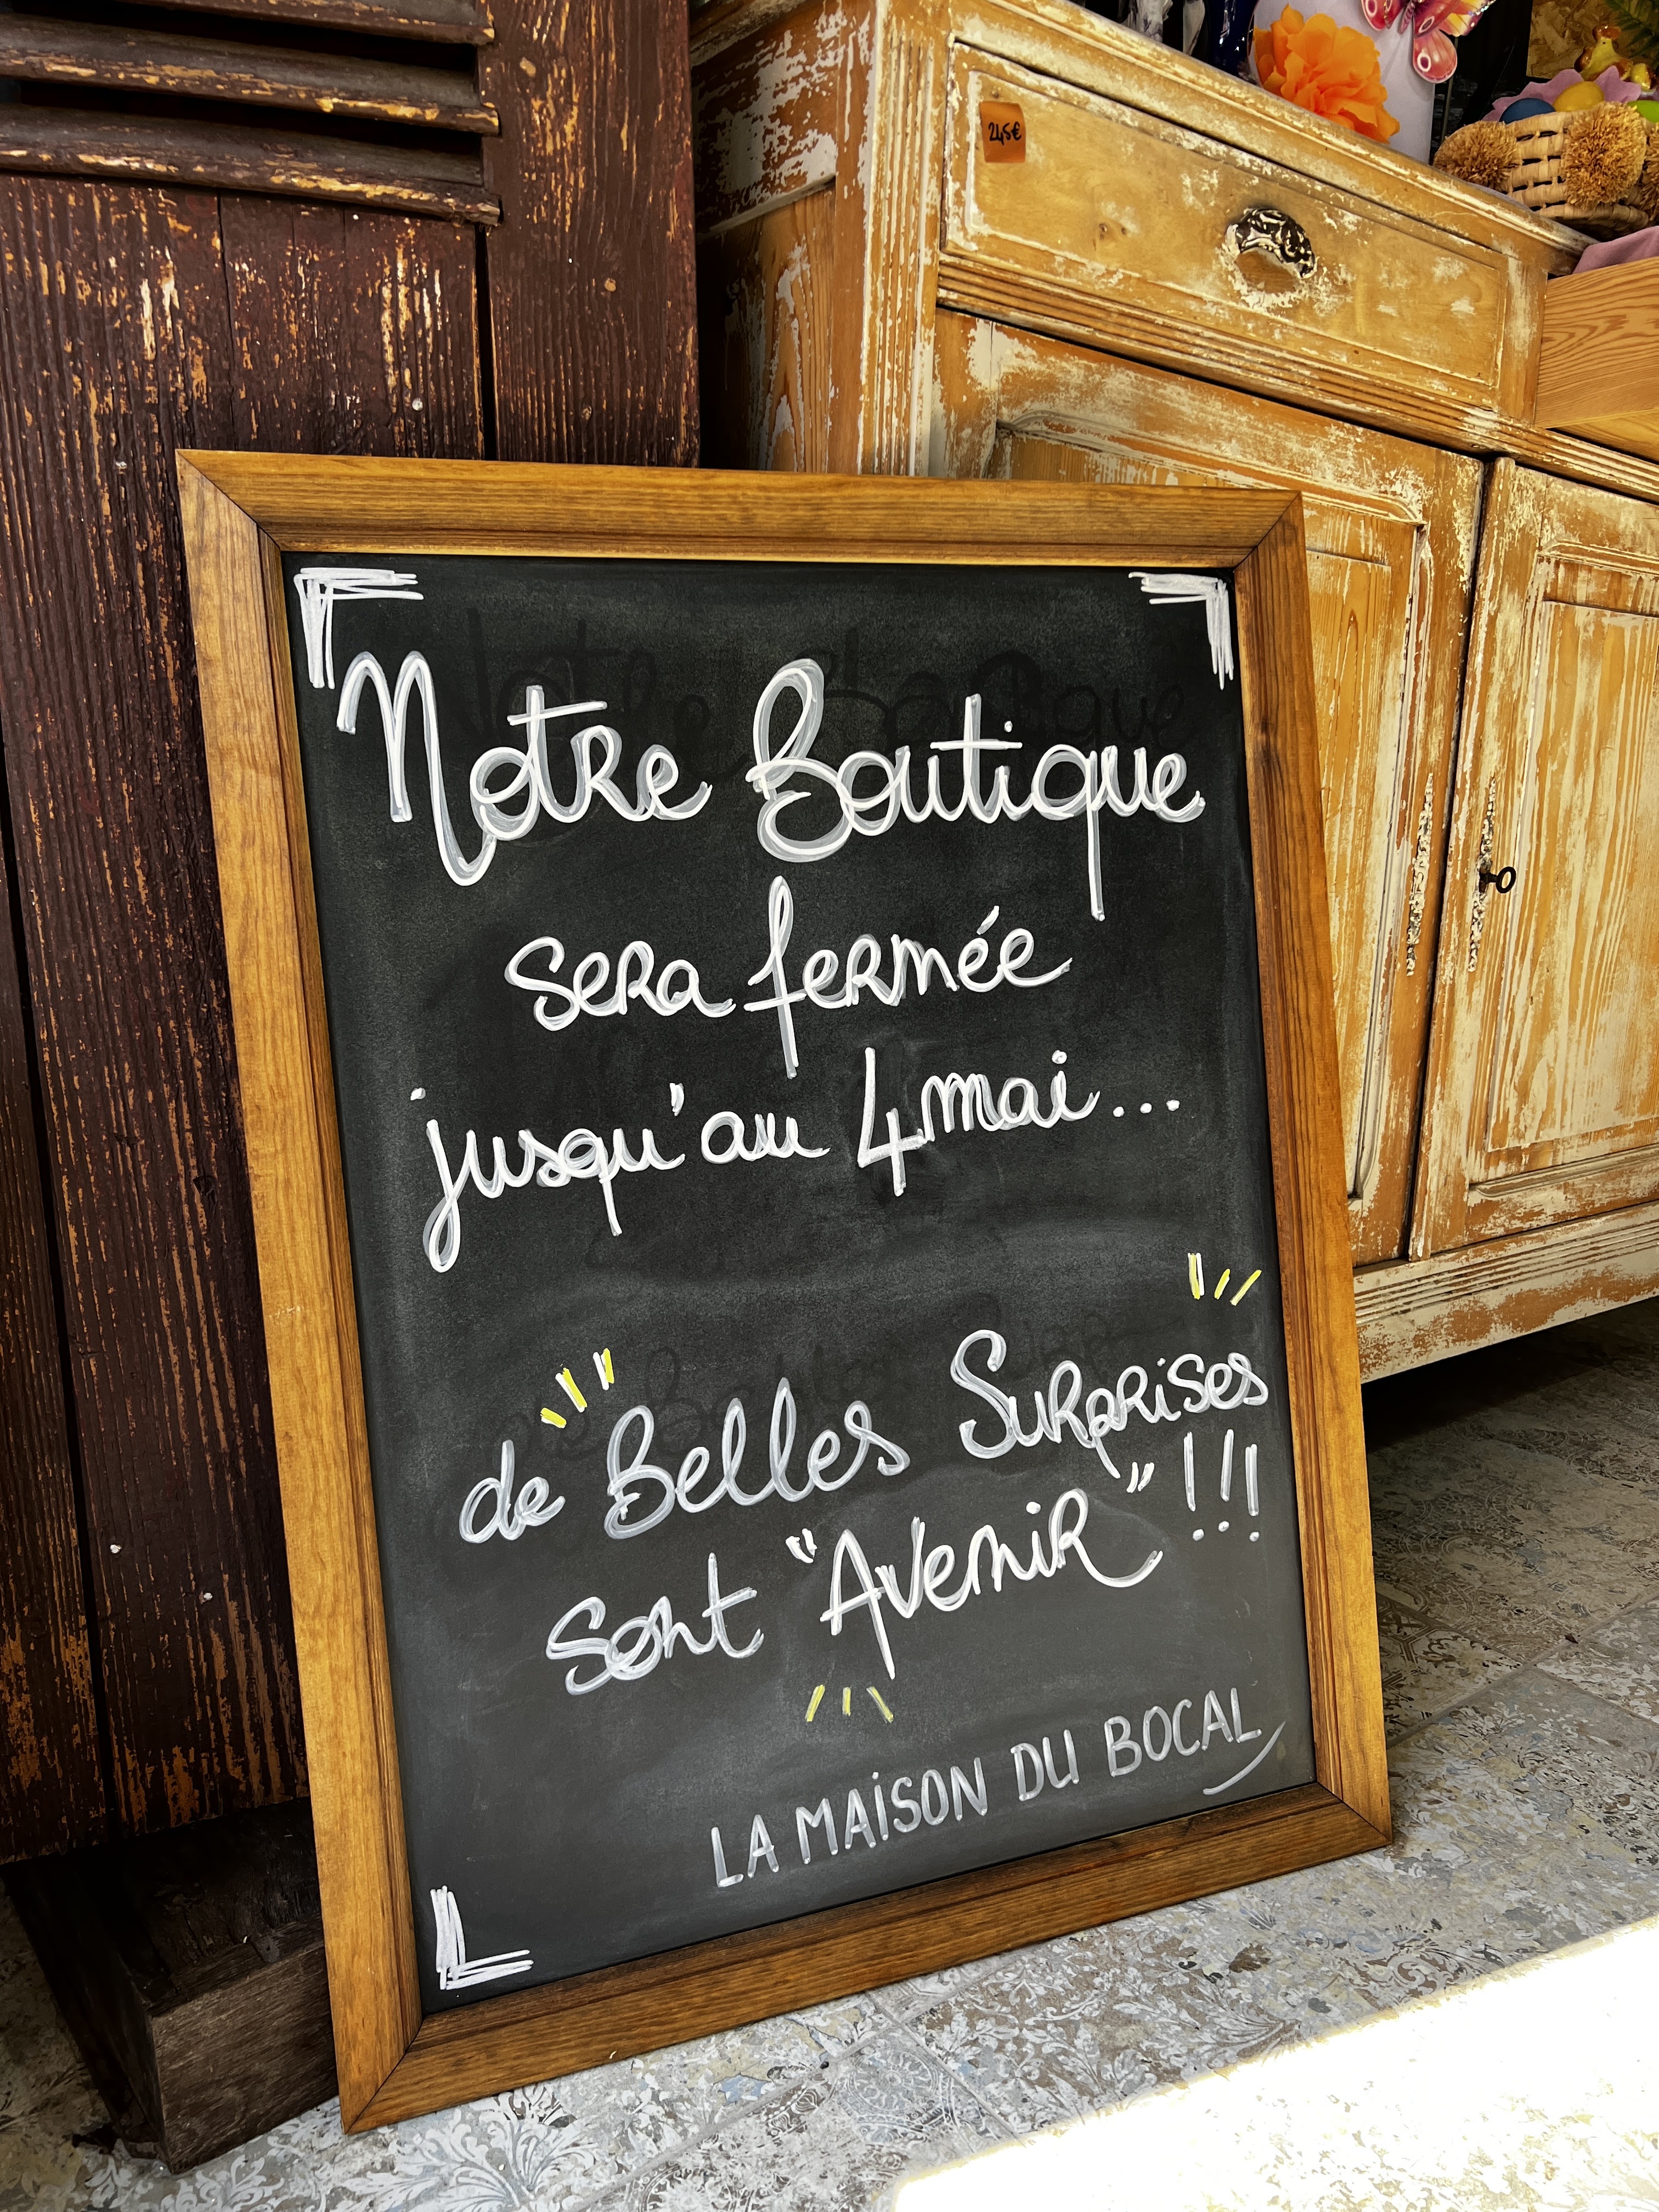 245€
Notre Boutique
sera fermée
jusqu'au 4 mai...
de Belles Surprises
sont "Avenir" !!!
LA MAISON DU BOCAL